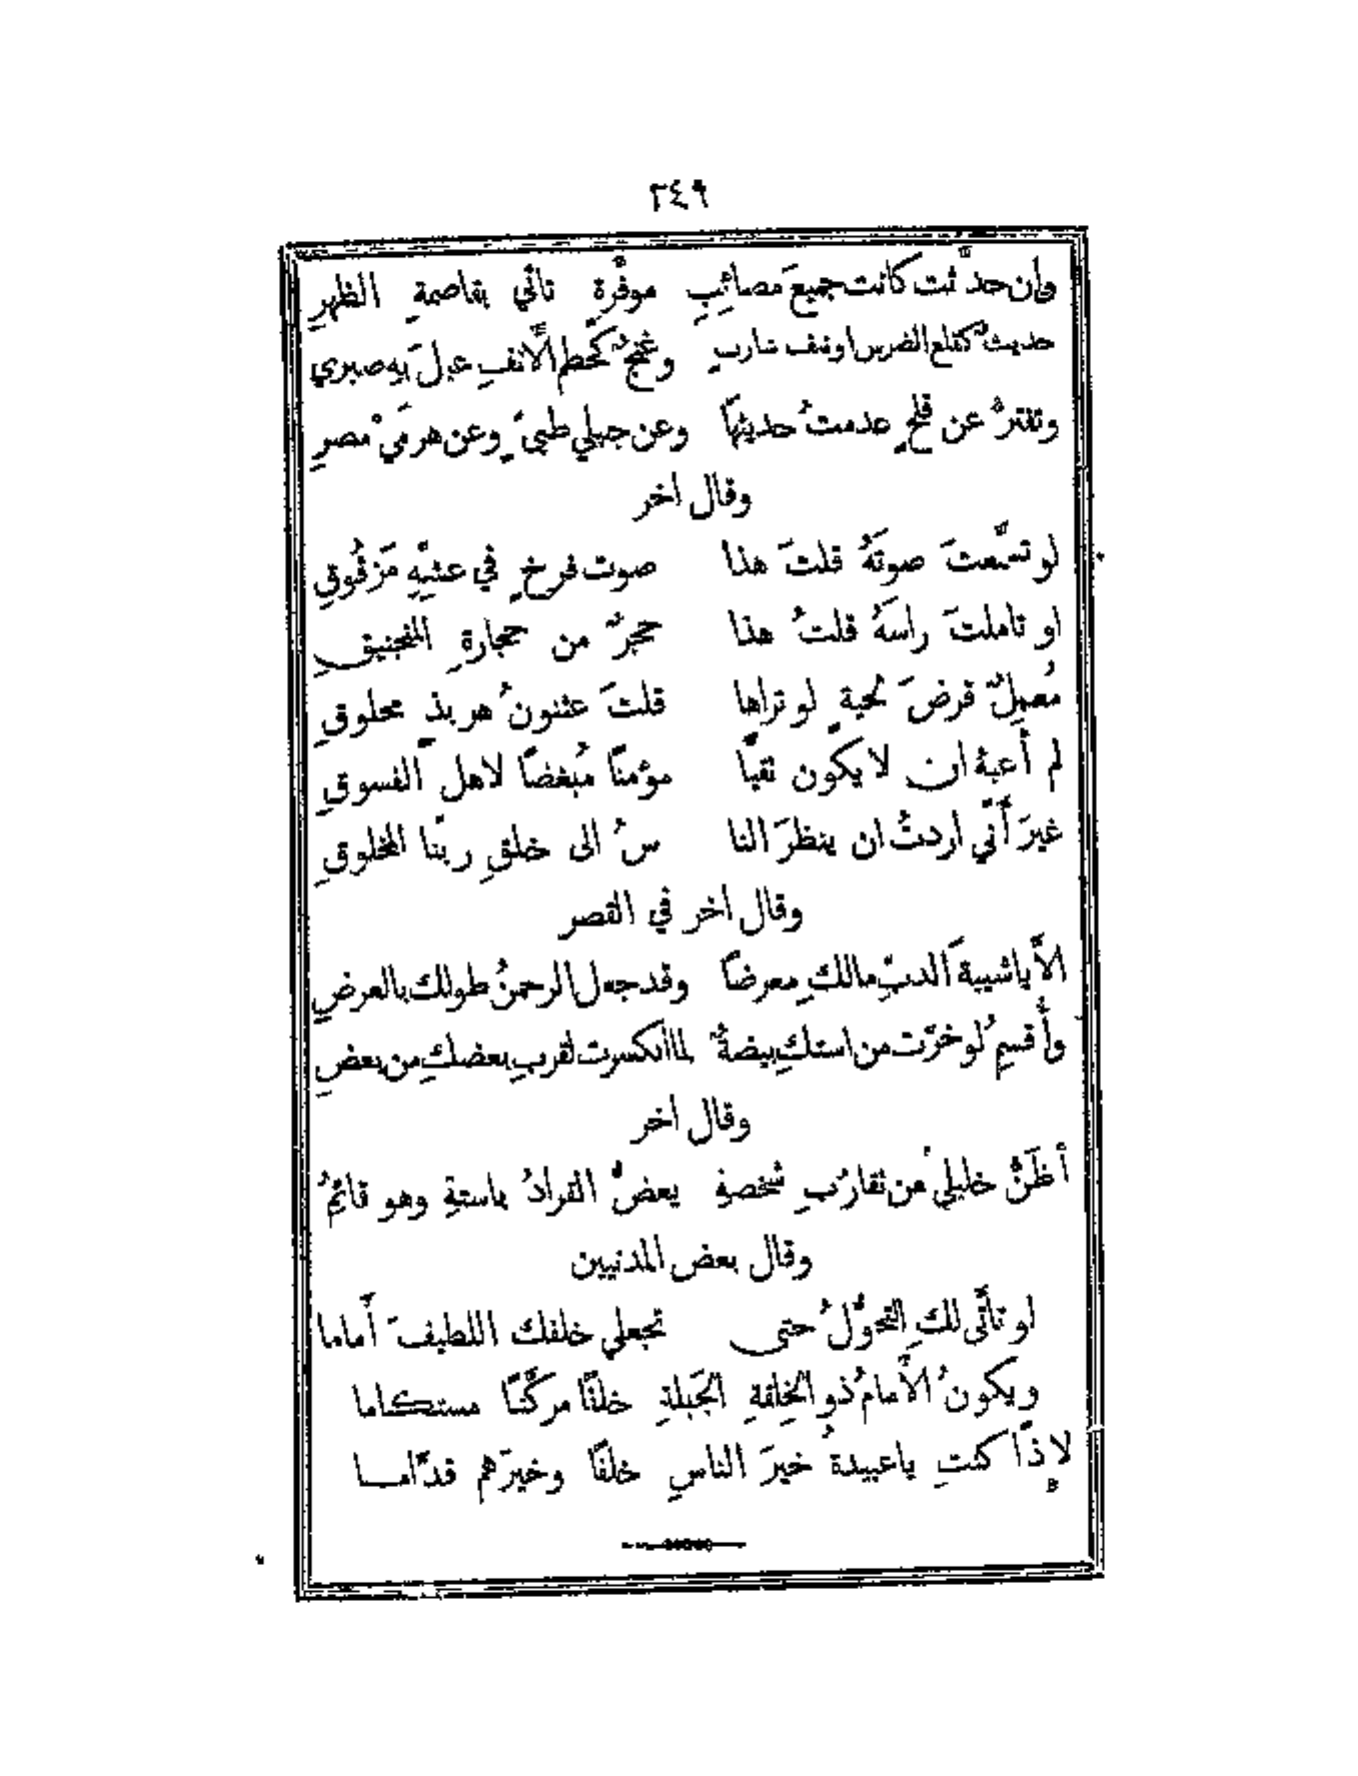 ٢٤٩
وإن حدَّثت كانت جميعَ مصائبِ موفَّرةٍ تأتي بقاصمةِ الظهرِ
حديثٌ كقلع الضرس او نتف شاربٍ وغنجٌ كحطم الأَنفِ عيلَ بهِ صبري
وتفترُّ عن قلحٍ عدمتُ حديثها وعن جبلي طيىءٍ وعن هرمَيْ مصرِ
وقال اخر
لو تسمَّعتَ صوتَهُ قلتَ هذا صوت فرخٍ في عشِّهِ مَزقُوقِ
او تاملتَ راسَهُ قلتُ هذا حجرٌ من حجارةِ المنجنيقِ
مُعمِلٌ قرضَ لحيةٍ لو تراها قلتَ عثنونُ هربذٍ محلوقِ
لم أَعبهُ ان لا يكون تقيًّا مؤمنًا مُبغضًا لاهل الفسوقِ
غيرَ أَنّي اردتُ ان ينظرَ النا سُ الى خلقِ ربّنا المخلوقِ
وقال اخر في القصر
الأَّ ياشبيهَ الدبِّ مالكِ معرضًا وقد جعل الرحمنُ طولك بالعرضِ
وأَقسمُ لو خرّت من استكِ بيضةٌ لما انكسرت لقربِ بعضكِ من بعضِ
وقال اخر
أَظنُّ خليلي من تقارُبِ شخصهِ يعضُّ القرادُ باستهِ وهو قائمُ
وقال بعض المدنيين
لو تأَتّى لكِ التحوُّلُ حتى تجعلي خلفك اللطيفَ أَماما
ويكونُ الأَمامُ ذو الخِلقةِ الجَبلةِ خلفًا مركَّنًا مستكاما
لإِذًا كنتِ ياعبيدةُ خيرَ الناسِ خلفًا وخيرَهم قدّاما